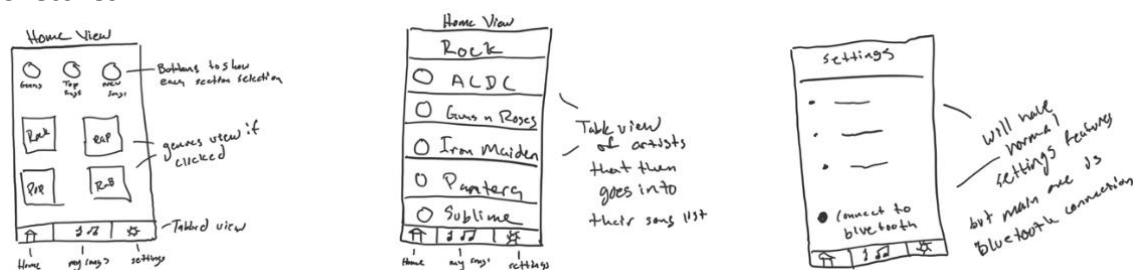 Home View
Top
Songs
Buttons to show
each section selection
Rock
Rap
Pop
RnB
genres view if
clicked
Tabbed view
Home
my songs
settings
Home View
Rock
ACDC
Guns n Roses
Iron Maiden
Pantera
Sublime
Home
my songs
settings
Table view
of artists
that then
goes into
their song list
settings
Connect to
bluetooth
will have
normal
settings features
but main one is
bluetooth connection